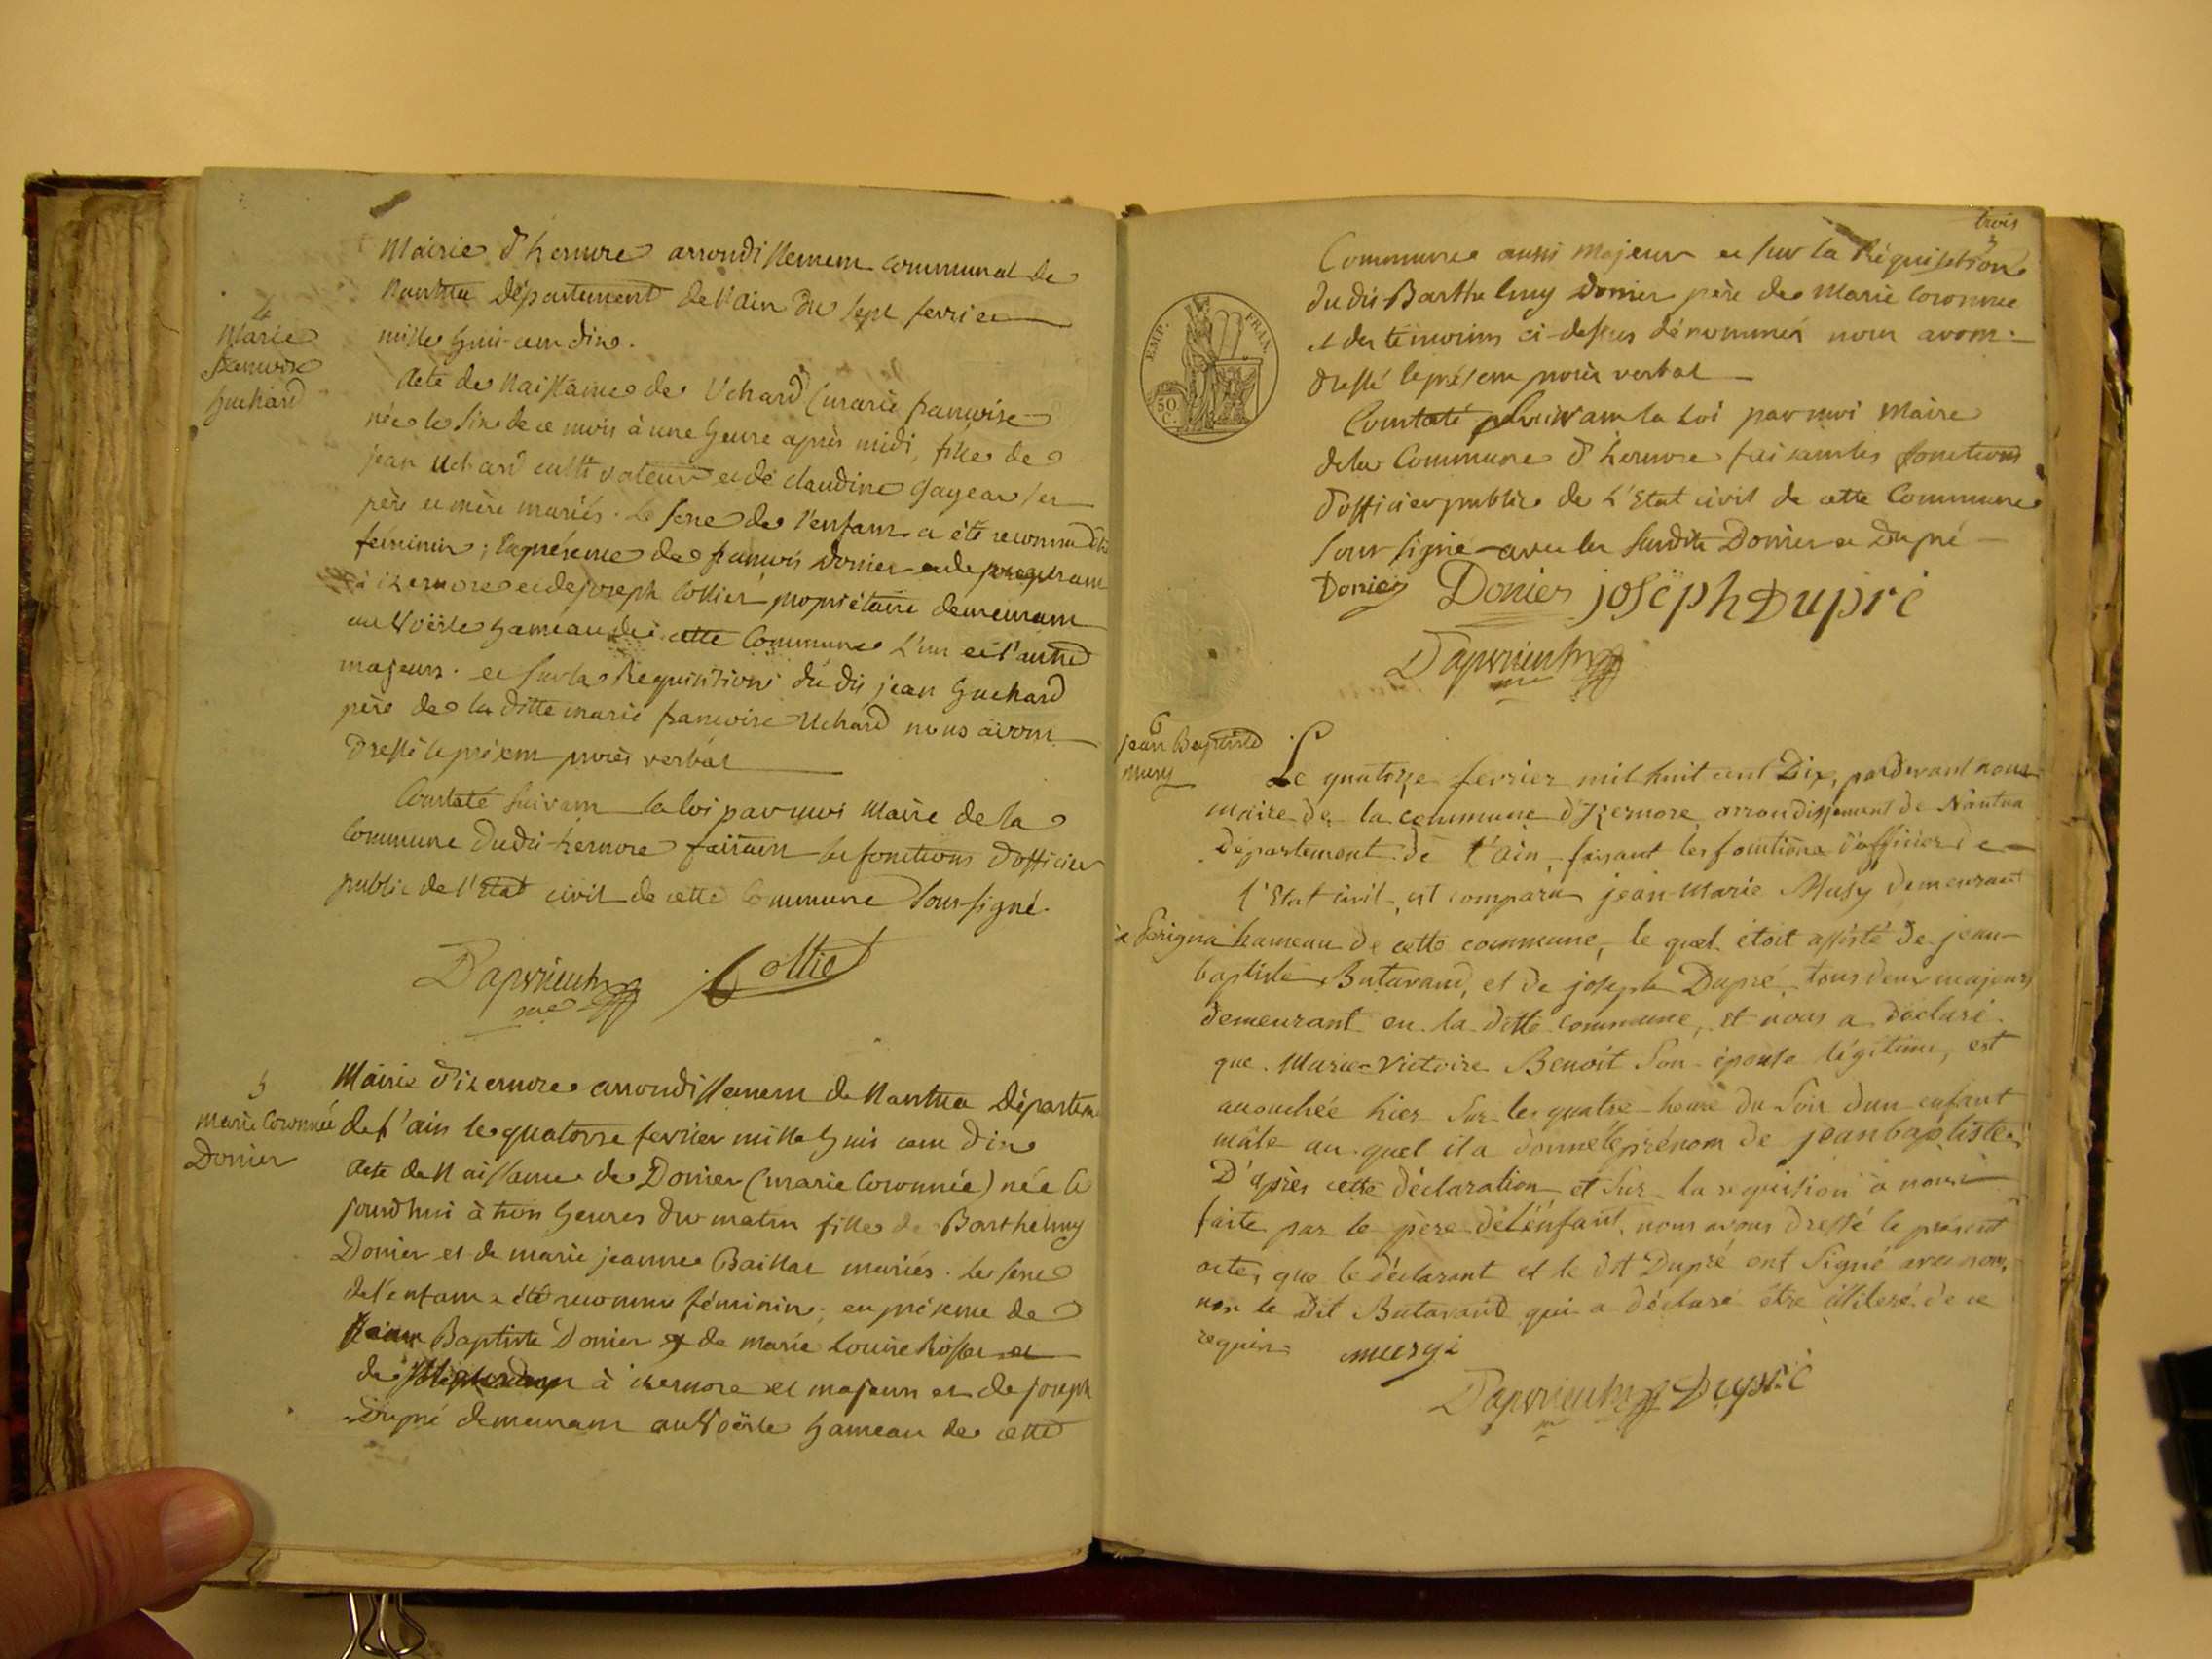 Mairie d'hernore arrondissement communal de
Nantua Département de l'ain Du sept fevrier
mille huit cent dix.
4
Marie
francoise
huchard
Acte de Naissance de Uchard (marie françoise
née le six de ce mois à une heure après midi, fille de
jean Uchard cultivateur et de claudine
père et mère mariés. Le sexe de l'enfant a été reconnu être
féminin; En présence de françois Donier
à izernore et de joseph Collier propriétaire demeurant
au Voërle hameau de cette Commune L'un et l'autre
majeurs. et sur la Requisition du dit jean huchard
père de la ditte marie francoise Uchard nous avons
Dressé le présent procès verbal
Constaté suivant la loi par moi Maire de la
Commune Dudit hernore faisant les fonctions d'officier
public de l'Etat civil de cette Commune Soussigné.
5
Marie Coronnée
Donier
Mairie d'izernore arrondissement de Nantua Départem
de l'ain le quatorze fevrier mille huit cent dix
Acte de Naissance de Donier (marie Coronnée) née ce
jourd'hui à trois heures du matin fille de Barthelmy
Donier et de marie jeanne Baillat mariés. Le sexe
de l'enfant a été reconnu féminin; en présence de
Jean Baptiste Donier de marie Louise et
de à izernore et majeur et de joseph
Dupré demeurant au Voërle hameau de cette
trois
3
Commune aussi majeur et sur la Réquisition
du dit Barthelmy Donier père de Marie Coronnee
et des témoins ci-dessus dénommés nous avons
dressé le présent procès verbal
EMP. FRAN.
50 C.
Constaté suivant la Loi par moi Maire
de la Commune d'hernore faisant les fonctions
d'officier public de L'Etat civil de cette Commune
Soussigné avec les susdits Donier et Dupré
Donier Donier joseph Dupré
6
jean Baptiste
musy
Le quatorze fevrier mil huit cent Dix, pardevant nous
maire de la commune d'Izernore, arrondissement de Nantua
departement de l'ain, faisant les fonctions d'officier de
l'Etat civil, est comparu jean-Marie Musy demeurant
à Perigna hameau de cette commune, le quel étoit assisté de jean-
baptiste Butavand, et de joseph Dupré, tous deux majeurs
demeurant en la ditte commune, et nous a déclaré
que Marie-Victoire Benoit son épouse légitime, est
accouchée hier sur les quatre heure du soir d'un enfant
mâle au quel il a donné le prénom de jean baptiste.
D'après cette déclaration et sur la requisition à nous
faite par le père de l'enfant, nous avons dressé le présent
acte, que le déclarant et le dit Dupré ont signé avec nous,
non le dit Butavand qui a déclaré être illiteré de ce
requis. musy
Dupré